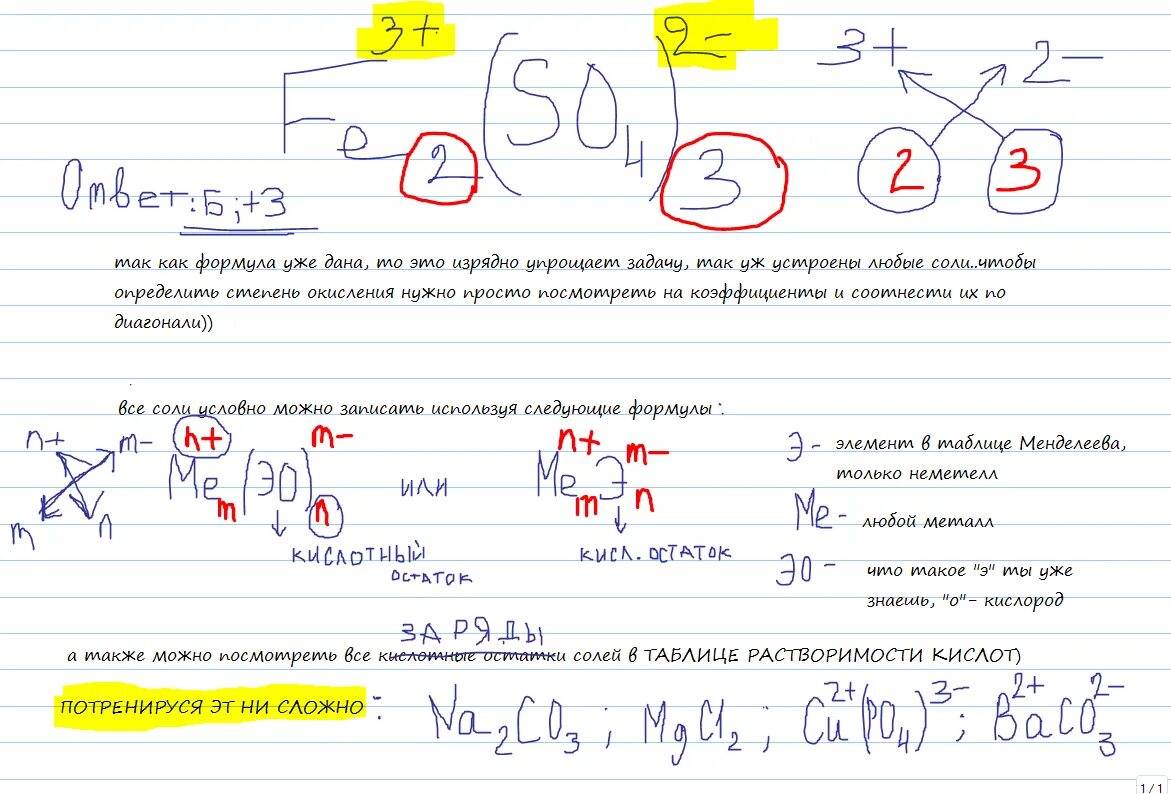 3+ 2- 3+ 2-
Fe2(SO4)3 2 3
Ответ: Б; +3
так как формула уже дана, то это изрядно упрощает задачу, так уж устроены любые соли..чтобы
определить степень окисления нужно просто посмотреть на коэффициенты и соотнести их по
диагонали))
все соли условно можно записать используя следующие формулы :
n+ m- n+ m- n+ m-
Me m (ЭО) n или Me m Э n
m n
Э - элемент в таблице Менделеева,
только неметелл
Ме - любой металл
кислотный
остаток
кисл. остаток
ЭО - что такое "э" ты уже
знаешь, "о"- кислород
ЗАРЯДЫ
а также можно посмотреть все кислотные остатки солей в ТАБЛИЦЕ РАСТВОРИМОСТИ КИСЛОТ)
ПОТРЕНИРУСЯ ЭТ НИ СЛОЖНО : Na2CO3 ; MgCl2 ; Cu2+(PO4)3- ; Ba2+CO3 2-
1 / 1